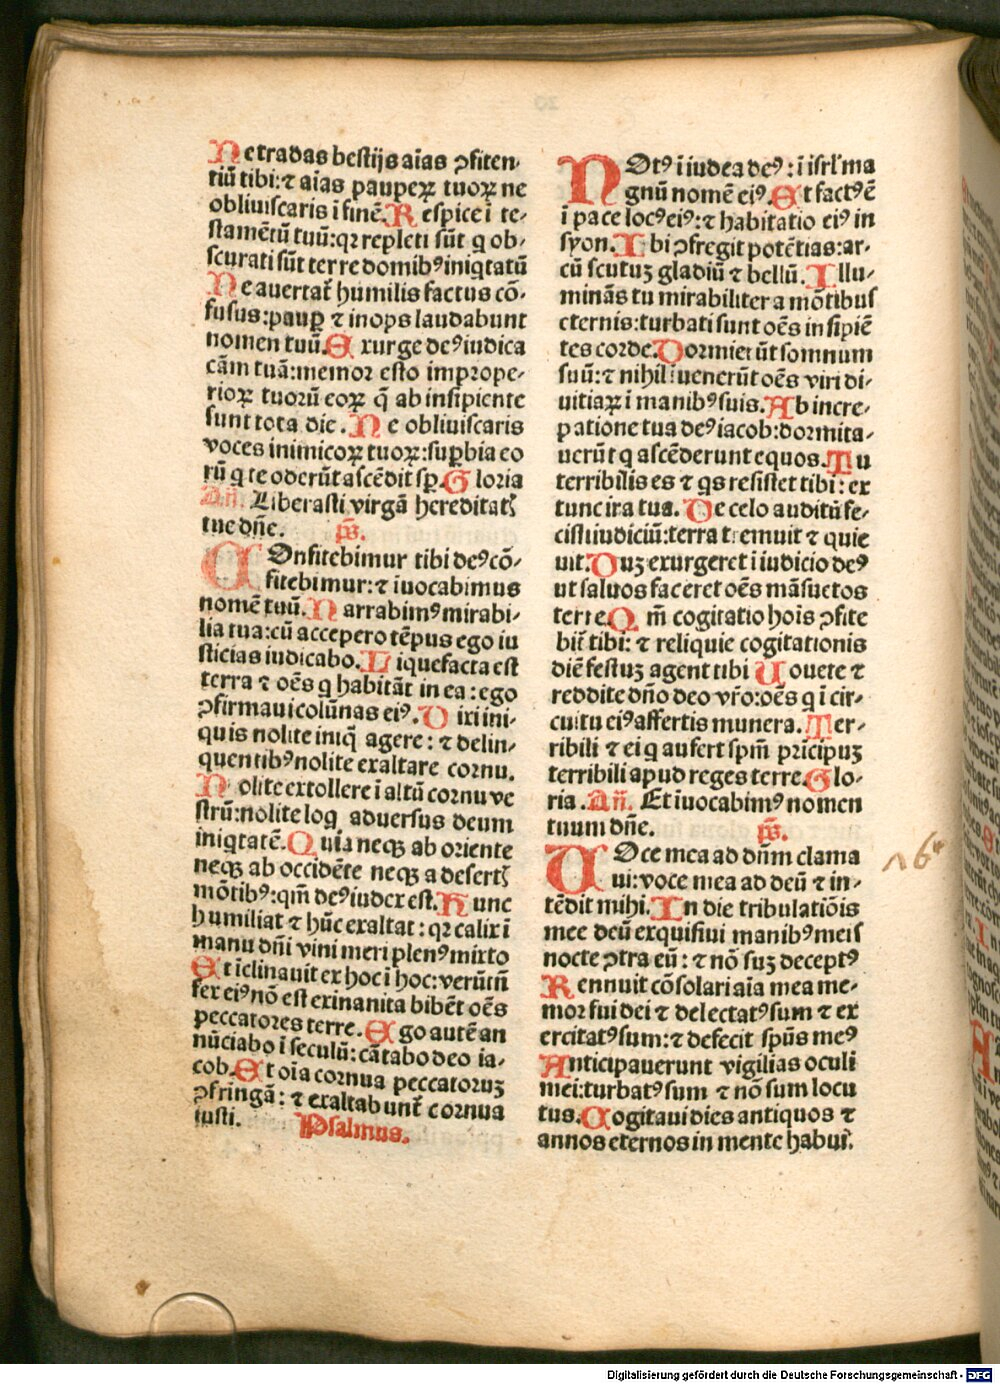 Ne tradas bestijs aīas ꝯfiten-
tiū tibi: ⁊ aīas pauperꝝ tuoꝝ ne
obliuiscaris ī finē. Respice ī te-
stamētū tuū: qꝛ repleti sūt q ob-
scurati sūt terre domibꝰ iniqtatū
Ne auertat̄ humilis factus cō-
fusus: paup̲ ⁊ inops laudabunt
nomen tuū. Exurge deꝰ iudica
cām tuā: memor esto imprope-
rioꝝ tuorū eoꝝ q̄ ab insipiente
sunt tota die. Ne obliuiscaris
voces inimicoꝝ tuoꝝ: suꝑbia eo
rū q te oderūt ascēdit sꝑ. Gloria
Añ. Liberasti virgā hereditatꝭ
tue dñe. ps.
COnfitebimur tibi deꝰ cō-
fitebimur: ⁊ īuocabimus
nomē tuū. Narrabimꝰ mirabi-
lia tua: cū accepero tēpus ego iu
sticias iudicabo. Liquefacta est
terra ⁊ oēs q habitāt in ea: ego
ꝯfirmaui colūnas eiꝰ. Dixi ini-
quis nolite iniq̄ agere: ⁊ delin-
quentibꝰ nolite exaltare cornu.
Nolite extollere ī altū cornu ve
strū: nolite loq aduersus deum
iniqtatē. Quia neqꝫ ab oriente
neqꝫ ab occidēte neqꝫ a desertꝭ
mōtibꝰ: qm̄ deꝰ iudex est. Hunc
humiliat ⁊ hūc exaltat: qꝛ calix ī
manu dñi vini meri plenꝰ mixto
Et īclinauit ex hoc ī hoc: verūtñ
fex eiꝰ nō est exinanita bibēt oēs
peccatores terre. Ego autē an
nūciabo ī seculū: cātabo deo ia-
cob. Et oīa cornua peccatoruꝫ
ꝯfringā: ⁊ exaltabunt̄ cornua
iusti. Psalmus.
NOtꝰ ī iudea deꝰ: ī isrl̄ ma
gnū nomē eiꝰ. Et factꝰ ē
ī pace locꝰ eiꝰ: ⁊ habitatio eiꝰ in
syon. Ibi ꝯfregit potētias: ar-
cū scutuꝫ gladiū ⁊ bellū. Illu-
minās tu mirabiliter a mōtibus
eternis: turbati sunt oēs insipiē
tes corde. Dormierūt somnum
suū: ⁊ nihil īuenerūt oēs viri di-
uitiaꝝ ī manibꝰ suis. Ab incre-
patione tua deꝰ iacob: dormita-
uerūt q ascēderunt equos. Tu
terribilis es ⁊ qs resistet tibi: ex
tunc ira tua. De celo auditū fe-
cisti iudiciū: terra tremuit ⁊ quie
uit. Duꝫ exurgeret ī iudicio deꝰ
ut saluos faceret oēs māsuetos
terre. Qm̄ cogitatio hoīs ꝯfite
bit̄ tibi: ⁊ reliquie cogitationis
diē festuꝫ agent tibi Uouete ⁊
reddite dño deo vr̄o: oēs q ī cir-
cuitu eiꝰ affertis munera. Ter-
ribili ⁊ ei q aufert spm̄ prīcipuꝫ
terribili apud reges terre. Glo-
ria. Añ. Et īuocabimꝰ nomen
tuum dñe. ps.
UOce mea ad dñm clama
ui: voce mea ad deū ⁊ in-
tēdit mihi. In die tribulatiōis
mee deū exquisiui manibꝰ meis
nocte ꝯtra eū: ⁊ nō suꝫ deceptꝰ
Rennuit cōsolari aīa mea me-
mor fui dei ⁊ delectatꝰ sum ⁊ ex
ercitatꝰ sum: ⁊ defecit spūs meꝰ
Anticipauerunt vigilias oculi
mei: turbatꝰ sum ⁊ nō sum locu
tus. Cogitaui dies antiquos ⁊
annos eternos in mente habui.
Digitalisierung gefördert durch die Deutsche Forschungsgemeinschaft - DFG